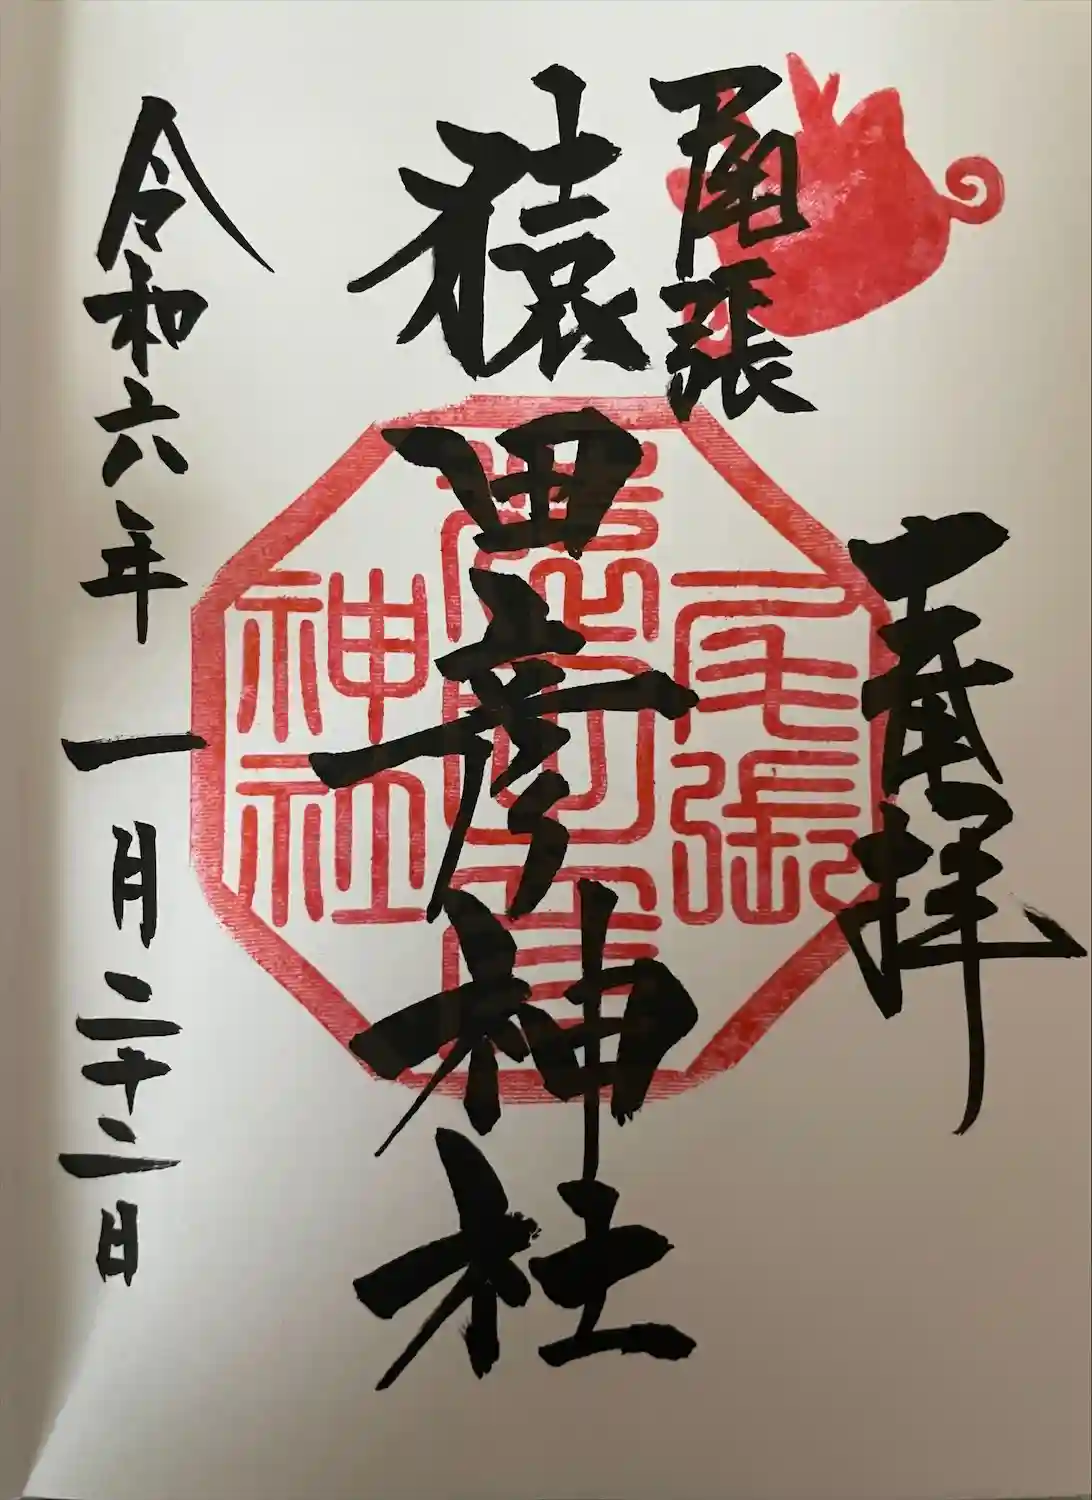 奉拝
尾張
猿田彦神社
令和六年一月二十二日
尾張
猿田彦
神社